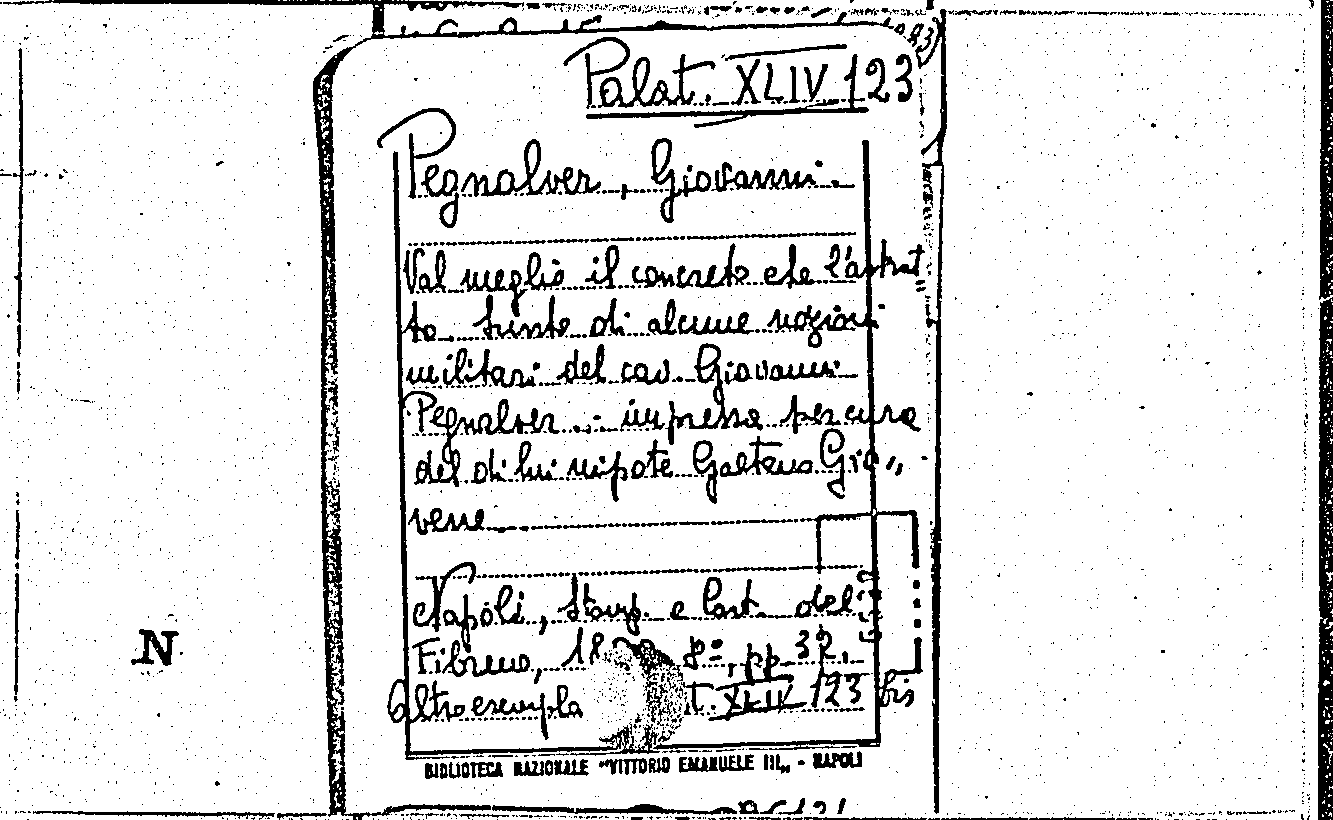 Palat. XLIV 123
Pegnalver, Giovanni.
Val meglio il concreto che l'astrat„
to. Sunto di alcune nozioni
militari del cav. Giovanni
Pegnalver.- impresso per cura
del di lui nipote Gaetano Gio„
vene
Napoli, Stamp. e Cart. del
Fibreno, 8º, pp. 32.
Altro XLIV 123 bis
N
BIBLIOTECA NAZIONALE "VITTORIO EMANUELE III„ - NAPOLI